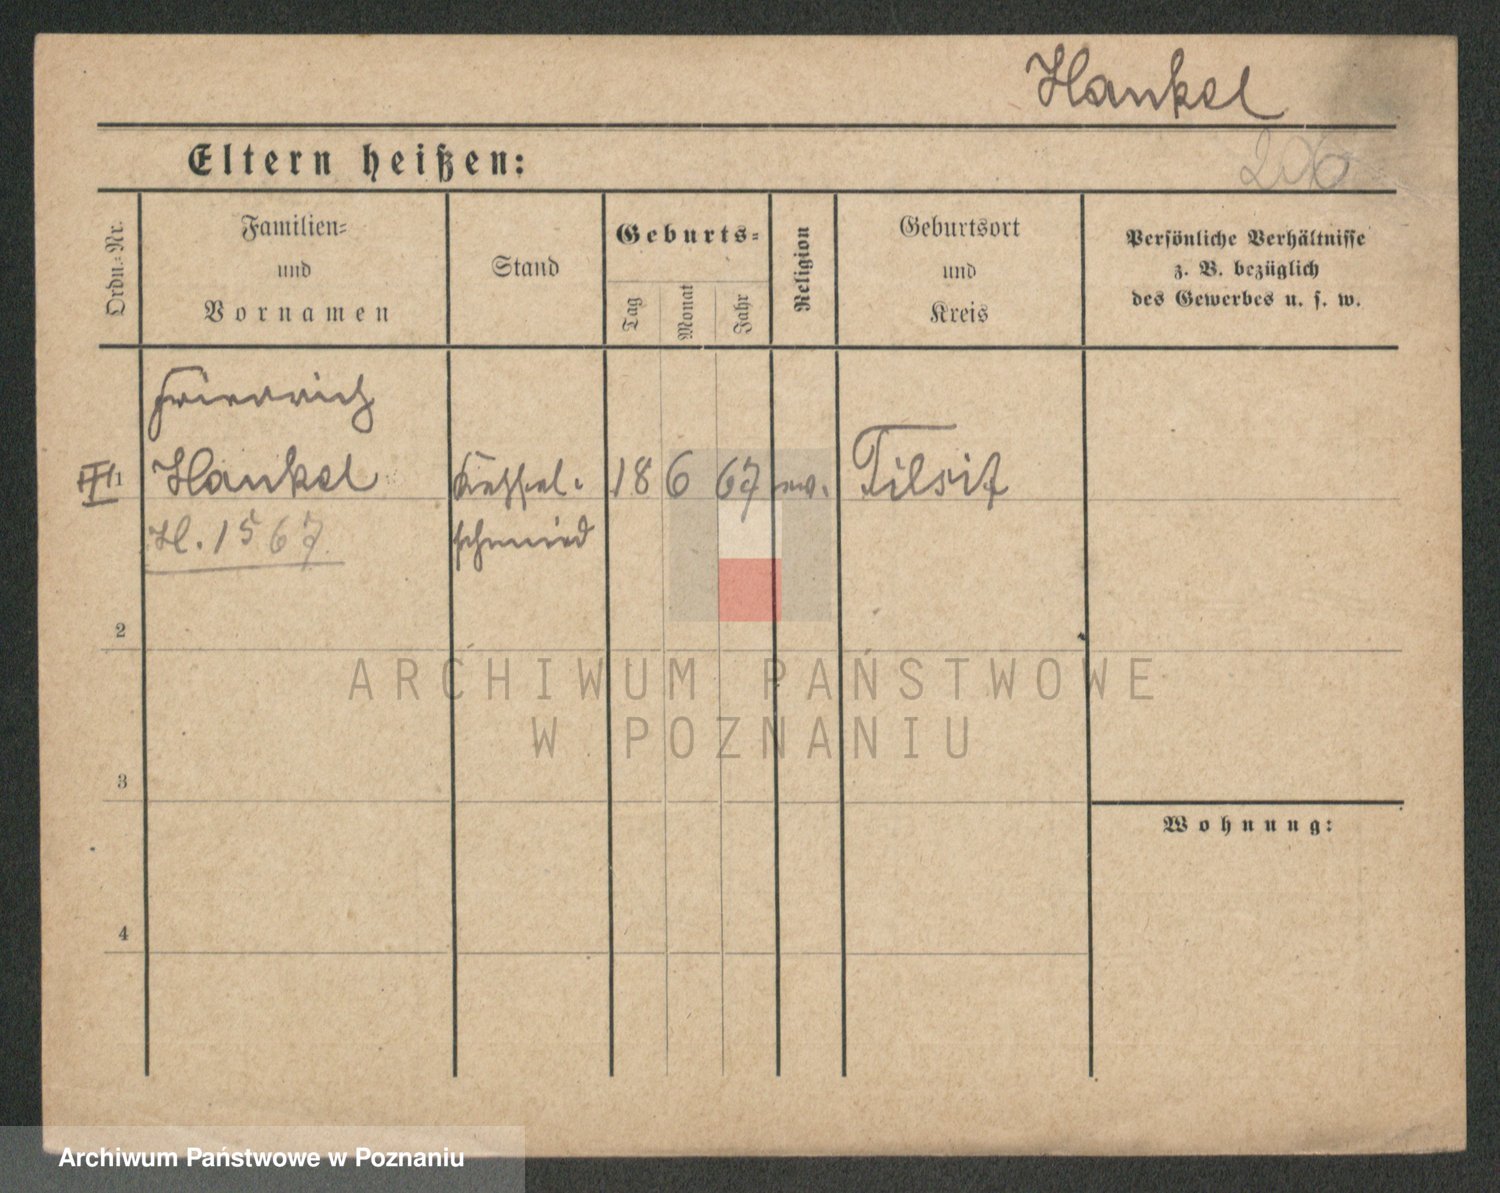 Hankel
Eltern heißen:
206
Ordn.-Nr.
Familien-
und
Vornamen
Stand
Geburts-
Tag
Monat
Jahr
Religion
Geburtsort
und
Kreis
Persönliche Verhältnisse
z. B. bezüglich
des Gewerbes u. s. w.
Friedrich
1 Hankel Kessel- 18 6 67 ev. Tilsit
H. 1567 schmied
2
ARCHIWUM PAŃSTWOWE
W POZNANIU
3
Wohnung:
4
Archiwum Państwowe w Poznaniu